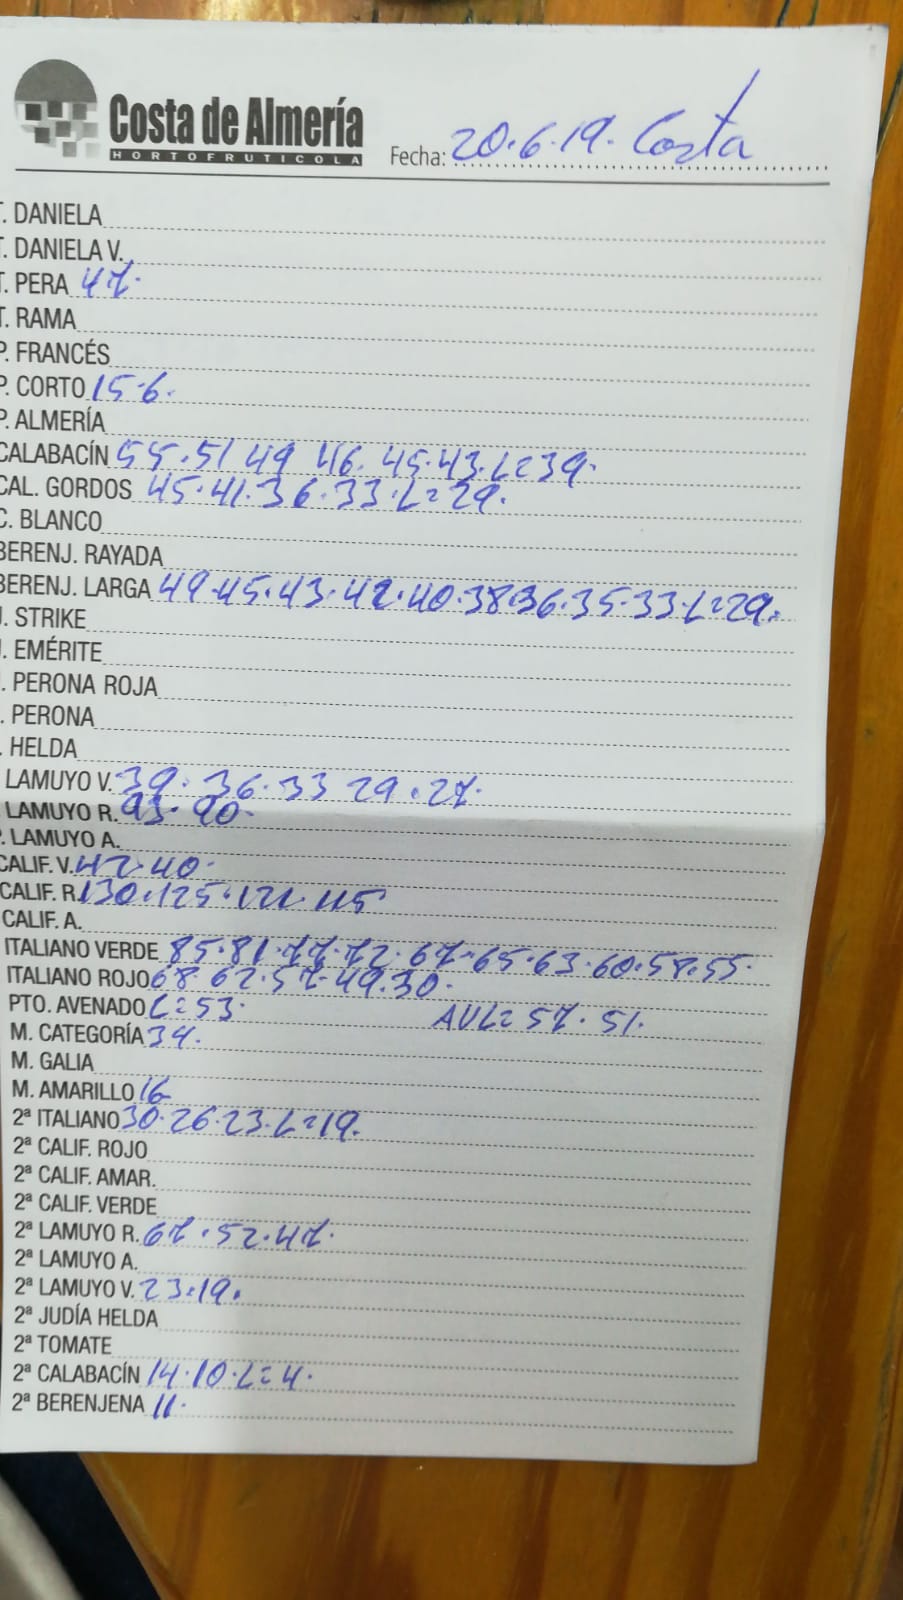 Costa de Almería
HORTOFRUTICOLA
Fecha: 20.6.19. Costa
T. DANIELA
T. DANIELA V.
T. PERA 47.
T. RAMA
P. FRANCÉS
P. CORTO 15.6.
P. ALMERÍA
CALABACÍN 55.51 49 46. 45.43.L=39.
CAL. GORDOS 45.41.36.33.L=29.
C. BLANCO
BERENJ. RAYADA
BERENJ. LARGA 49.45.43.42.40.38.36.35.33.L=29.
J. STRIKE
J. EMÉRITE
. PERONA ROJA
. PERONA
. HELDA
LAMUYO V. 39. 36.33 29.27.
LAMUYO R. 93.90.
P. LAMUYO A.
CALIF. V. 42.40.
CALIF. R. 130.125.121. 115
CALIF. A.
ITALIANO VERDE 85.81.77.72.67.65.63.60.58.55.
ITALIANO ROJO 68 62.57.49.30.
PTO. AVENADO L=53. AVL=57.51.
M. CATEGORÍA 34.
M. GALIA
M. AMARILLO 16
2ª ITALIANO 30.26.23.L=19.
2ª CALIF. ROJO
2ª CALIF. AMAR.
2ª CALIF. VERDE
2ª LAMUYO R. 67.52.47.
2ª LAMUYO A.
2ª LAMUYO V. 23.19.
2ª JUDÍA HELDA
2ª TOMATE
2ª CALABACÍN 14.10.L=4.
2ª BERENJENA 11.